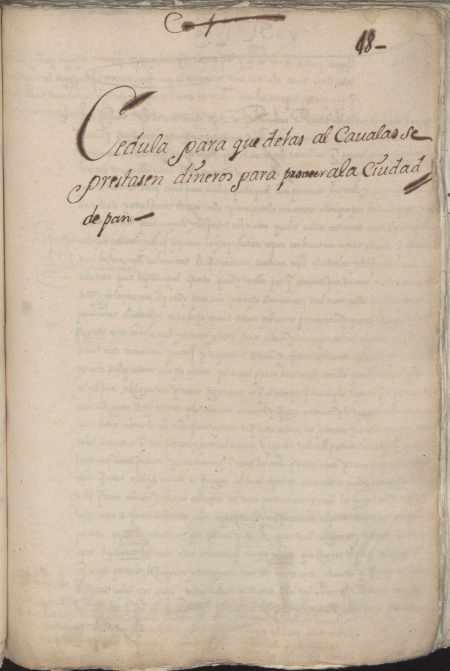 18-
Cedula para que delas al Caualas se
prestasen dineros para ala Ciudad
de pan